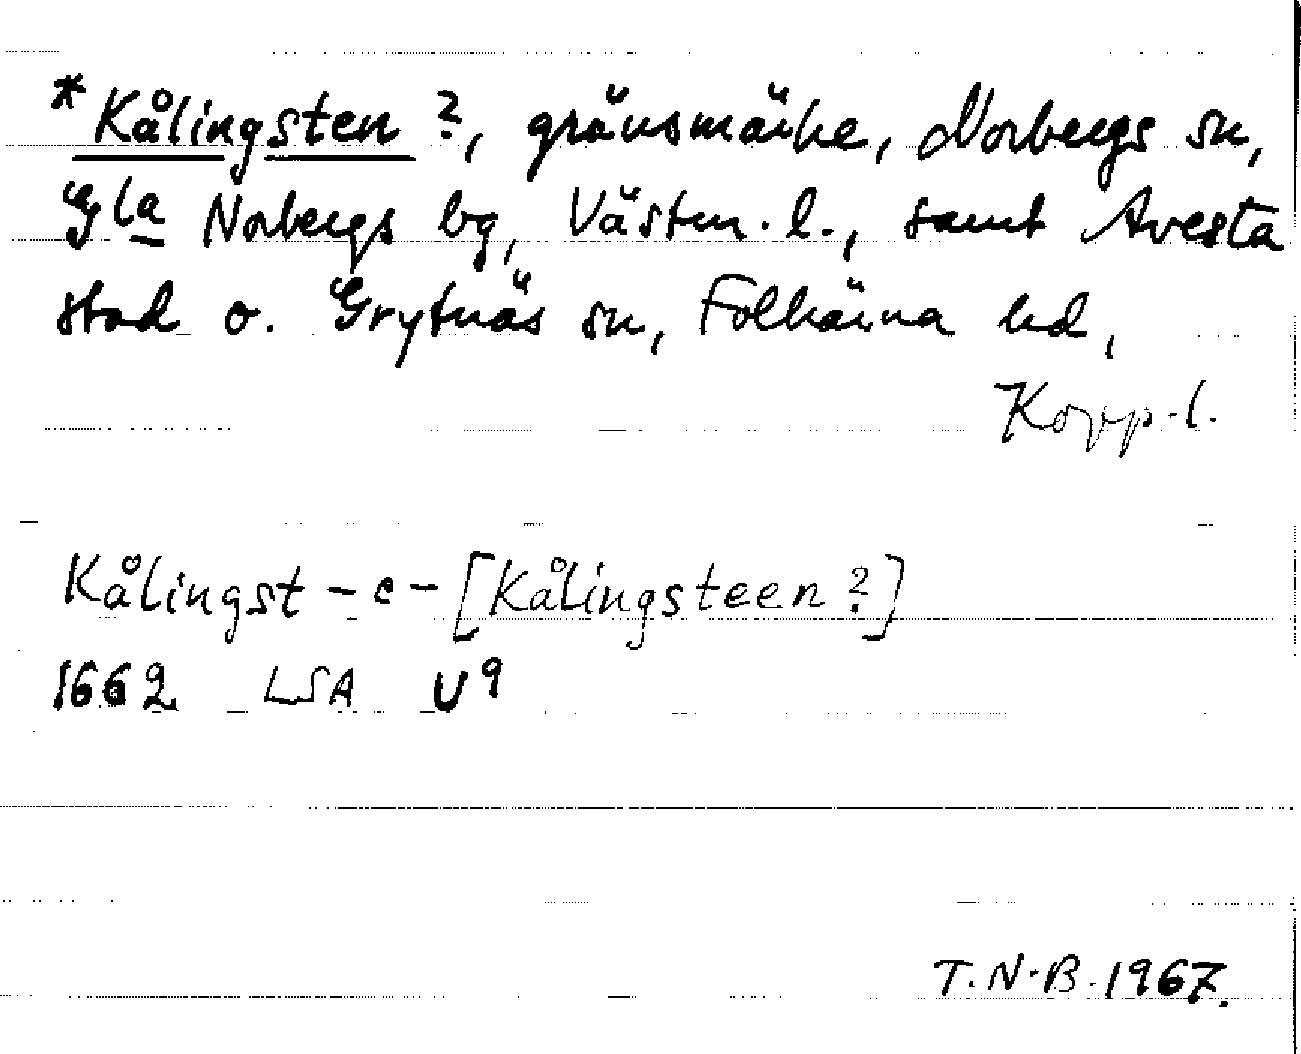 *Kålingsten ?, gränsmärke, Norbergs sn,
Gla Norbergs bg, Västm. l., samt Avesta
stad o. Grytnäs sn, Folkärna hd,
Kopp. l.
Kålingst - e - [Kålingsteen ?]
1662 LSA U9
T.N-B. 1967.